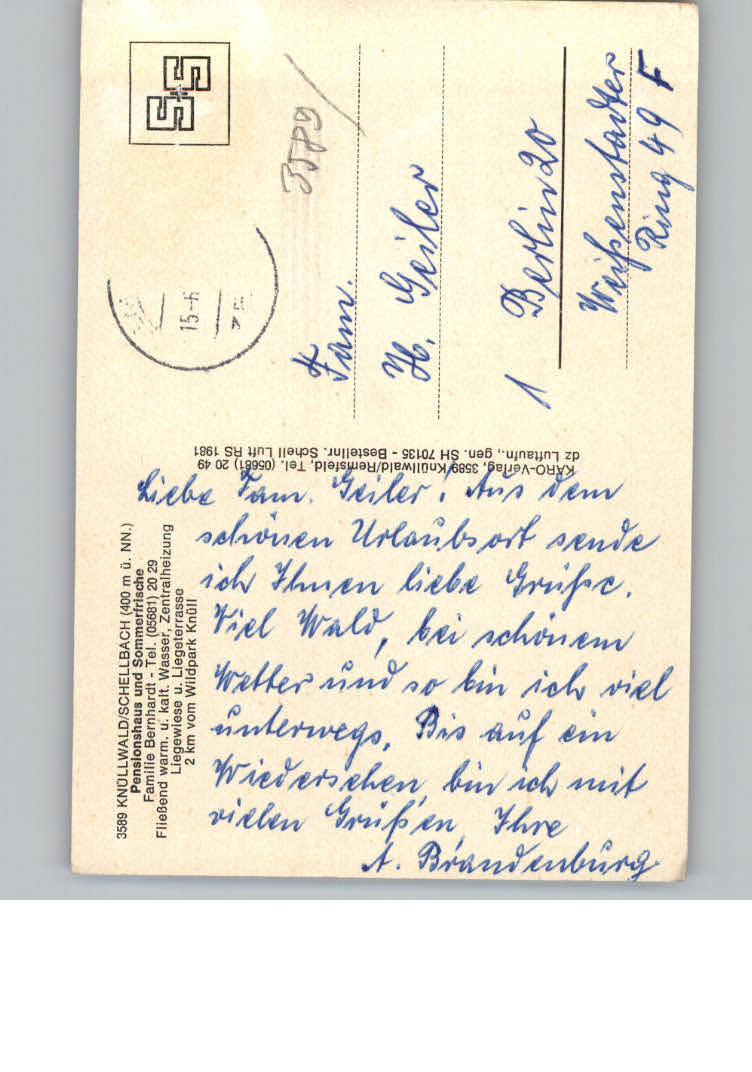 3589 KNÜLLWALD/SCHELLBACH (400 m ü. NN.)
Pensionshaus und Sommerfrische
Familie Bernhardt - Tel. (05681) 20 29
Fließend warm. u. kalt. Wasser, Zentralheizung
Liegewiese u. Liegeterrasse
2 km vom Wildpark Knüll
Liebe Fam. Geiler! Aus dem
schönen Urlaubsort sende
ich Ihnen liebe Grüße.
Viel Wald, bei schönem
Wetter und so bin ich viel
unterwegs. Bis auf ein
Wiedersehen bin ich mit
vielen Grüßen, Ihre
A. Brandenburg.
KARO-Verlag, 3589 Knüllwald/Remsfeld, Tel. (05681) 20 49
dz Luftaufn., gen. SH 70135 - Bestellnr. Schell Luft RS 1981
S+S
3589
15.-6
Fam.
H. Geiler
1 Berlin 20
Weißenstadter
Ring 49 F